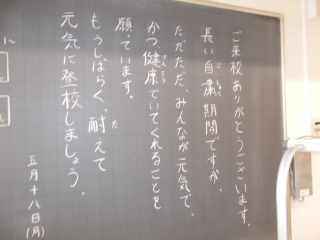 ご来校ありがとうございます。
長い自粛期間ですが、
ただただ、みんなが元気で、
かつ、健康でいてくれることを
願っています。
もうしばらく、耐えて
元気に登校しましょう。
五月十八日(月)